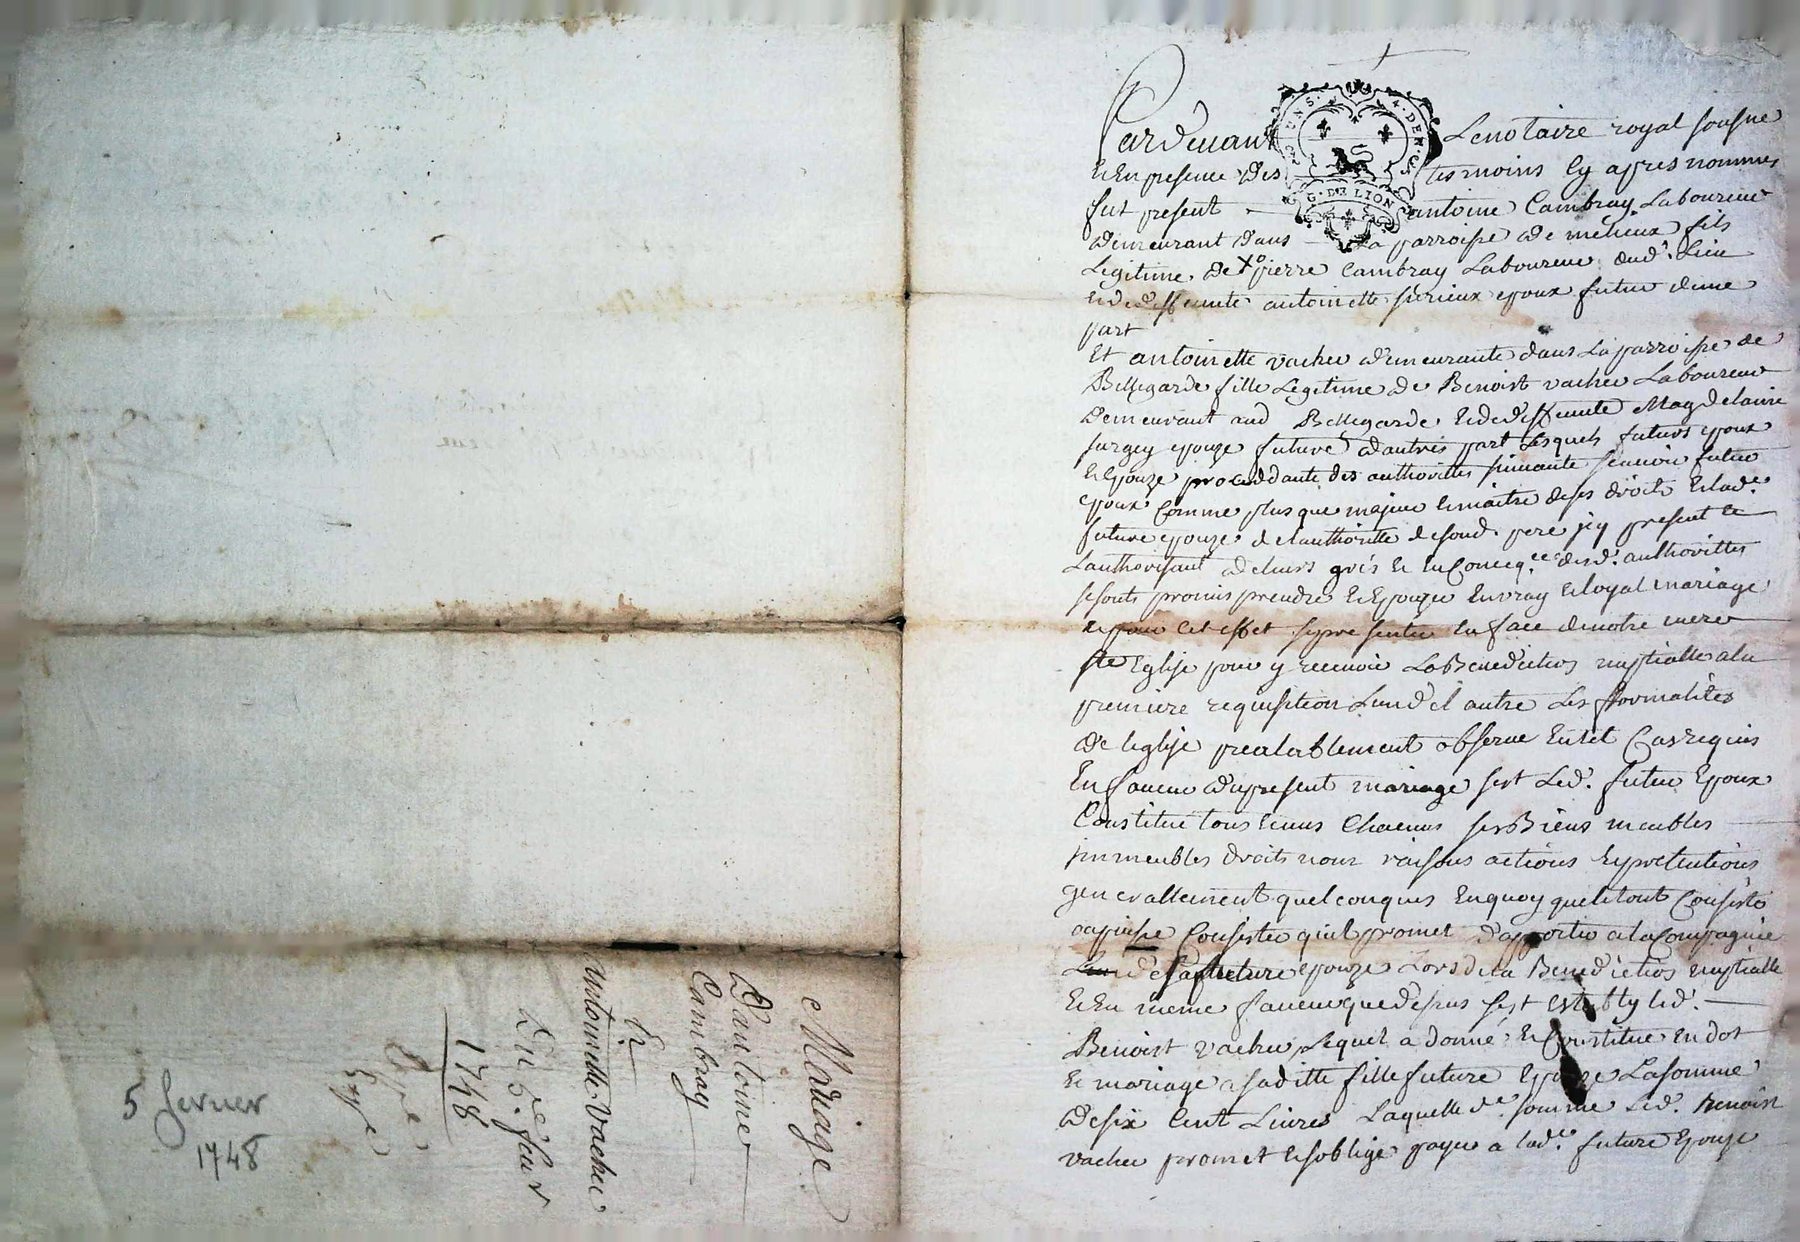 Mariage
D'antoine
Cambray
&
Antoinette Vacher
Du 5e feur
1748
Exp.e
5 fevrier
1748
G. DE LION
Pardevant Le notaire royal sousne
et En presence des tesmoins Cy apres nommes
fut present antoine Cambray Laboureur
demeurant dans La parroisse de méheux fils
Legitime de pierre Cambray Laboureur dud. Lieu
et de deffunte antoinette epoux futur dune
part
Et antoinette vacher demeurante dans La parroisse de
Bellegarde fille Legitime de Benoist vacher Laboureur
Demeurant aud Bellegarde et de deffunte Magdelaine
epouze future d'autres part Lesquels futurs epoux
et Epouze proceddante des authorittes suivante scavoir futur
epoux Comme plus que majeur et maitre de ses droits et lad.e
future epouze de l'authoritte de sond. pere icy present et
Lauthorisant de leurs grés et En Conceq.ce desd. authorittes
se sonts promis prendre et Epouzer En vray et loyal mariage
et pour cet effet se presenter En face de notre mere
ste Eglise pour y recevoir La Benediction nuptialle a la
premiere requisition Lun de l autre Les fformalites
de leglise prealablement observé En tel Cas requis
En faveur du present mariage s'est Led. futur Epoux
Constitué tous et uns Chacuns ses Biens meubles
immeubles droits noms raisons actions et pretentions
generallement quelconques En quoy que le tout Consiste
et Consister qu'il promet d'apporter a la Compagnie
de sa future epouze Lors de la Benediction nuptialle
et En meme faveur que dessus s'est establyled.
Benoist vacher Lequel a donné et Constitué en dot
et mariage a saditte fille future Epouze La somme
de six Cent Livres Laquelle de somme Led. Benoist
vacher promet et s'oblige payer a lad.e future Epouze